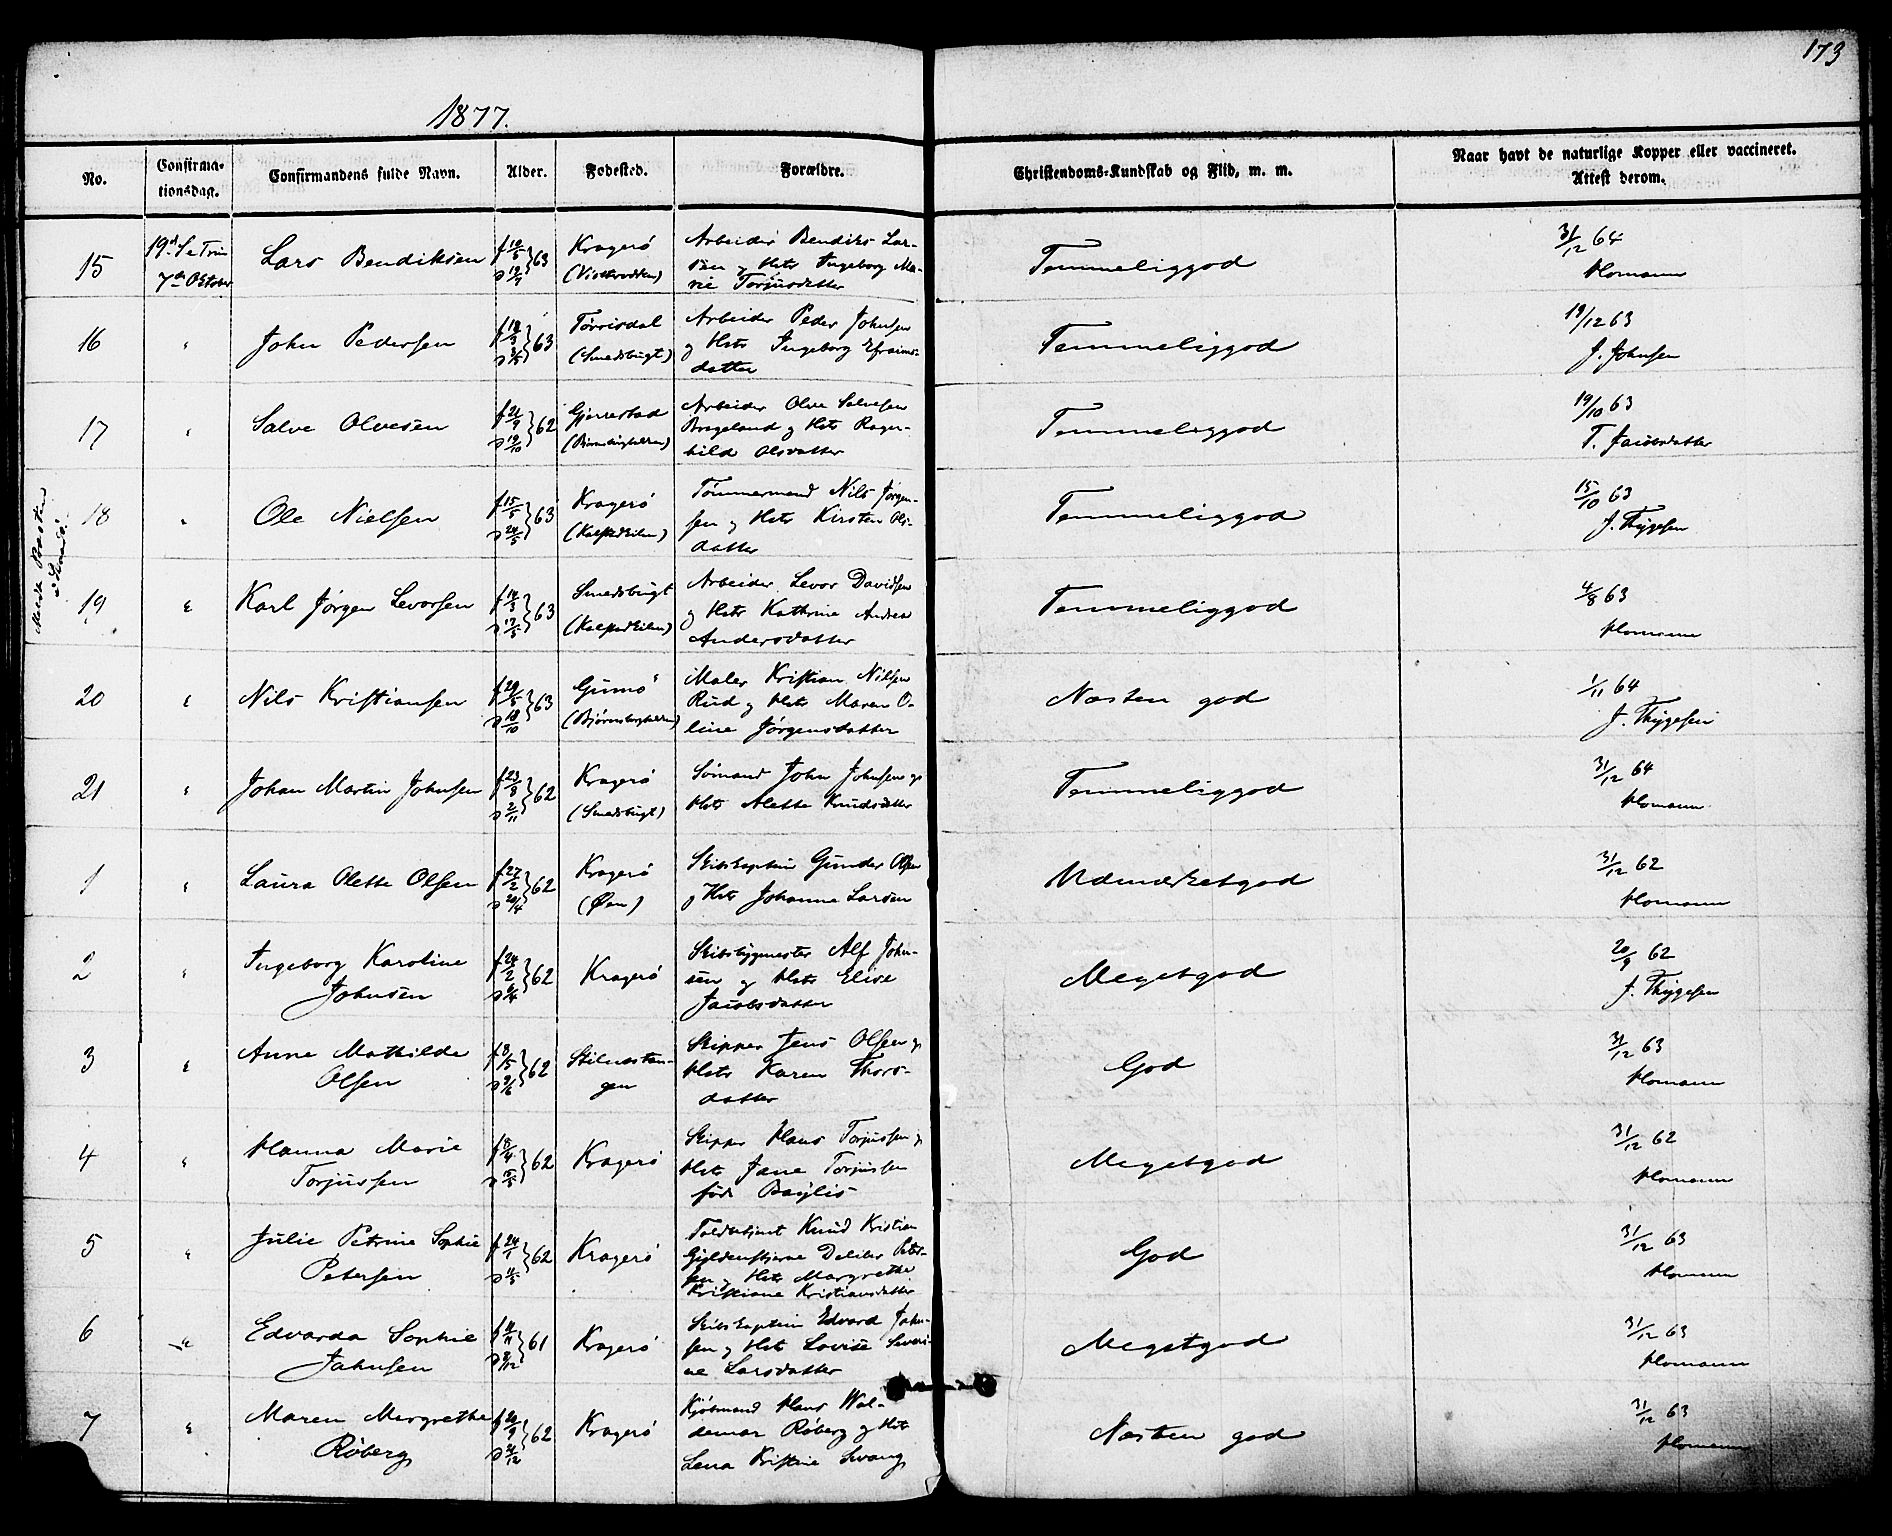 173
1877.
No.
Confirma-
tionsdag.
Confirmandens fulde Navn.
Alder.
Fødested.
Forældre.
Christendoms-Kundskab og Flid, m. m.
Naar havt de naturlige Kopper eller vaccineret.
Attest derom.
15
19d. S. e Trin
7de Oktober
Lars Bendiksen
63
Kragerø
Arbeider Bendiks Lar-
sen og Hst Ingeborg Ma-
rie Torjusdatter
Temmeliggod
31/12 64
Homann
16
"
John Pedersen
63
Tørrisdal
(Smedsbugt)
Arbeider Peder Johnsen
og Hst Ingeborg Efraims-
datter
Temmeliggod
19/12 63
J. Johnsen
17
"
Salve Olvesen
62
Gjerrestad
Arbeider Olve Salvesen
og Hst Ragn-
hild Olsdatter
Temmeliggod
19/10 63
T. Jacobsdatter
18
"
Ole Nielsen
f 15/5
63
Kragerø
Tømmermand Nils Jørgen-
sen og Hst Kirsten Ols-
datter
Temmeliggod
15/10 63
J. Thygesen
19
"
Karl Jørgen Levorsen
63
Smedsbugt
Arbeider Levor Davidsen
og Hst Kathrine Andrea
Andersdatter
Temmeliggod
4/8 63
Homann
20
"
Nils Kristiansen
63
Gumø
Maler Kristian Nilsen
Rud og Hst Maren O-
line Jørgensdatter
Næsten god
1/11 64
J. Thygesen
21
"
Johan Martin Johnsen
62
Kragerø
(Smedsbugt)
Sømand John Johnsen og
Hst Alette Knudsdatter
Temmeliggod
31/12 64
Homann
1
"
Laura Olette Olsen
f 27/2
d 20/4
62
Kragerø
(Øen)
Skibskaptein Gunder Olsen
og Hst Johanne Larsen
Udmærketgod
31/12 62
Homann
2
"
Ingeborg Karoline
Johnsen
f 24/2
62
Kragerø
Skibsbygmester Alf John-
sen og Hst Elise
Jacobsdatter
Megetgod
20/9 62
J. Thygesen
3
"
Anne Mathilde
Olsen
f 8/5
d 9/6
62
Stilnestan-
gen
Skipper Jens Olsen og
Hst Karen Thors-
datter
God
31/12 63
Homann
4
"
Hanna Marie
Torjussen
62
Kragerø
Skipper Hans Torjussen og
Hst Jane Torjussen
født Baylis
Megetgod
31/12 62
Homann
5
"
Julie Petrine Sophie
Petersen
62
Kragerø
Toldbetjent Knud Kristian
Gyldenstjerne Peter-
sen og Hst Margrethe
Kristiane Kristiansdatter
God
31/12 63
Homann
6
"
Edvarda Sophie
Jahnsen
61
Kragerø
Skibskaptein Edvard Jahn-
sen og Hst Lovise Severi-
ne Larsdatter
Megetgod
31/12 63
Homann
7
"
Maren Margrethe
Røberg
62
Kragerø
Kjøbmand Hans Wal-
demar Røberg og Hst
Lena Kristine Svang
Næsten god
31/12 63
Homann